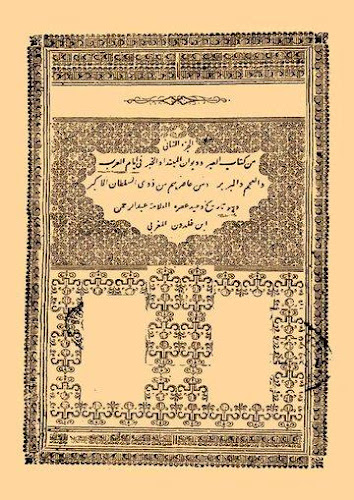 الجزء الثاني
من كتاب العبر وديوان المبتدا والخبر في أيام العرب
والعجم والبربر ومن عاصرهم من ذوي السلطان الاكبر
وهو تاريخ وحيد عصره العلامة عبد الرحمن
ابن خلدون المغربي